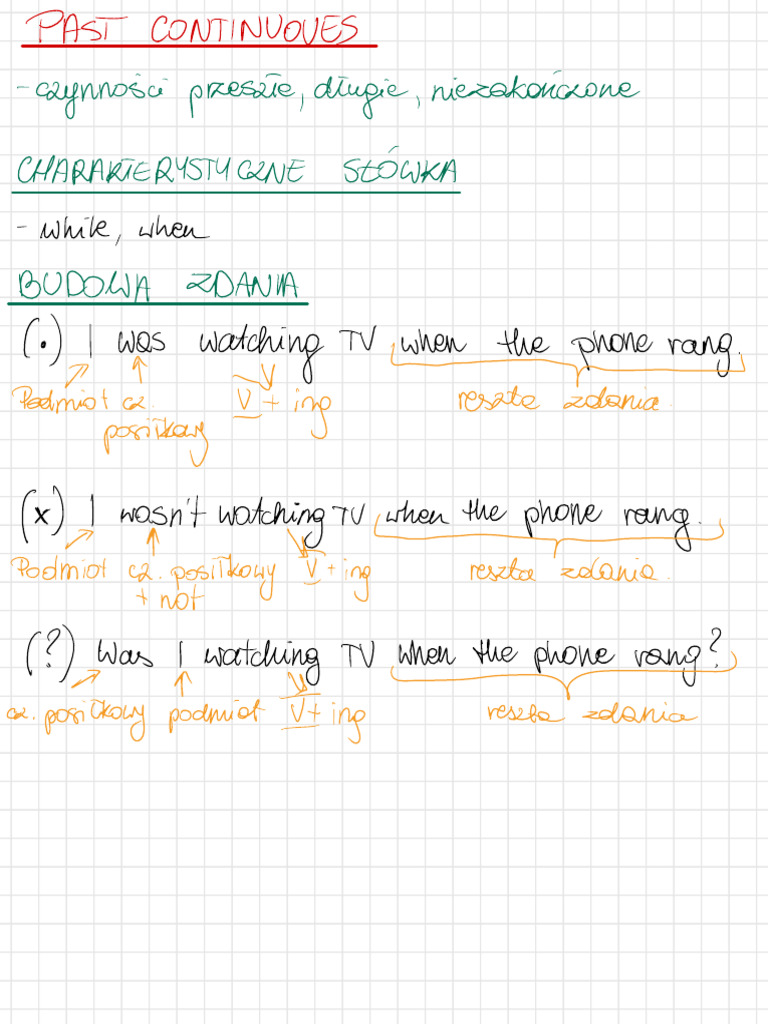 PAST CONTINUOUES
- czynności przeszłe, długie, niezakończone
CHARAKTERYSTYCZNE SŁÓWKA
- while, when
BUDOWA ZDANIA
(.) I was watching TV when the phone rang.
Podmiot cz. posiłkowy V + ing reszta zdania.
(x) I wasn't watching TV when the phone rang.
Podmiot cz. posiłkowy + not V + ing reszta zdania.
(?) Was I watching TV when the phone rang?
cz. posiłkowy podmiot V + ing reszta zdania